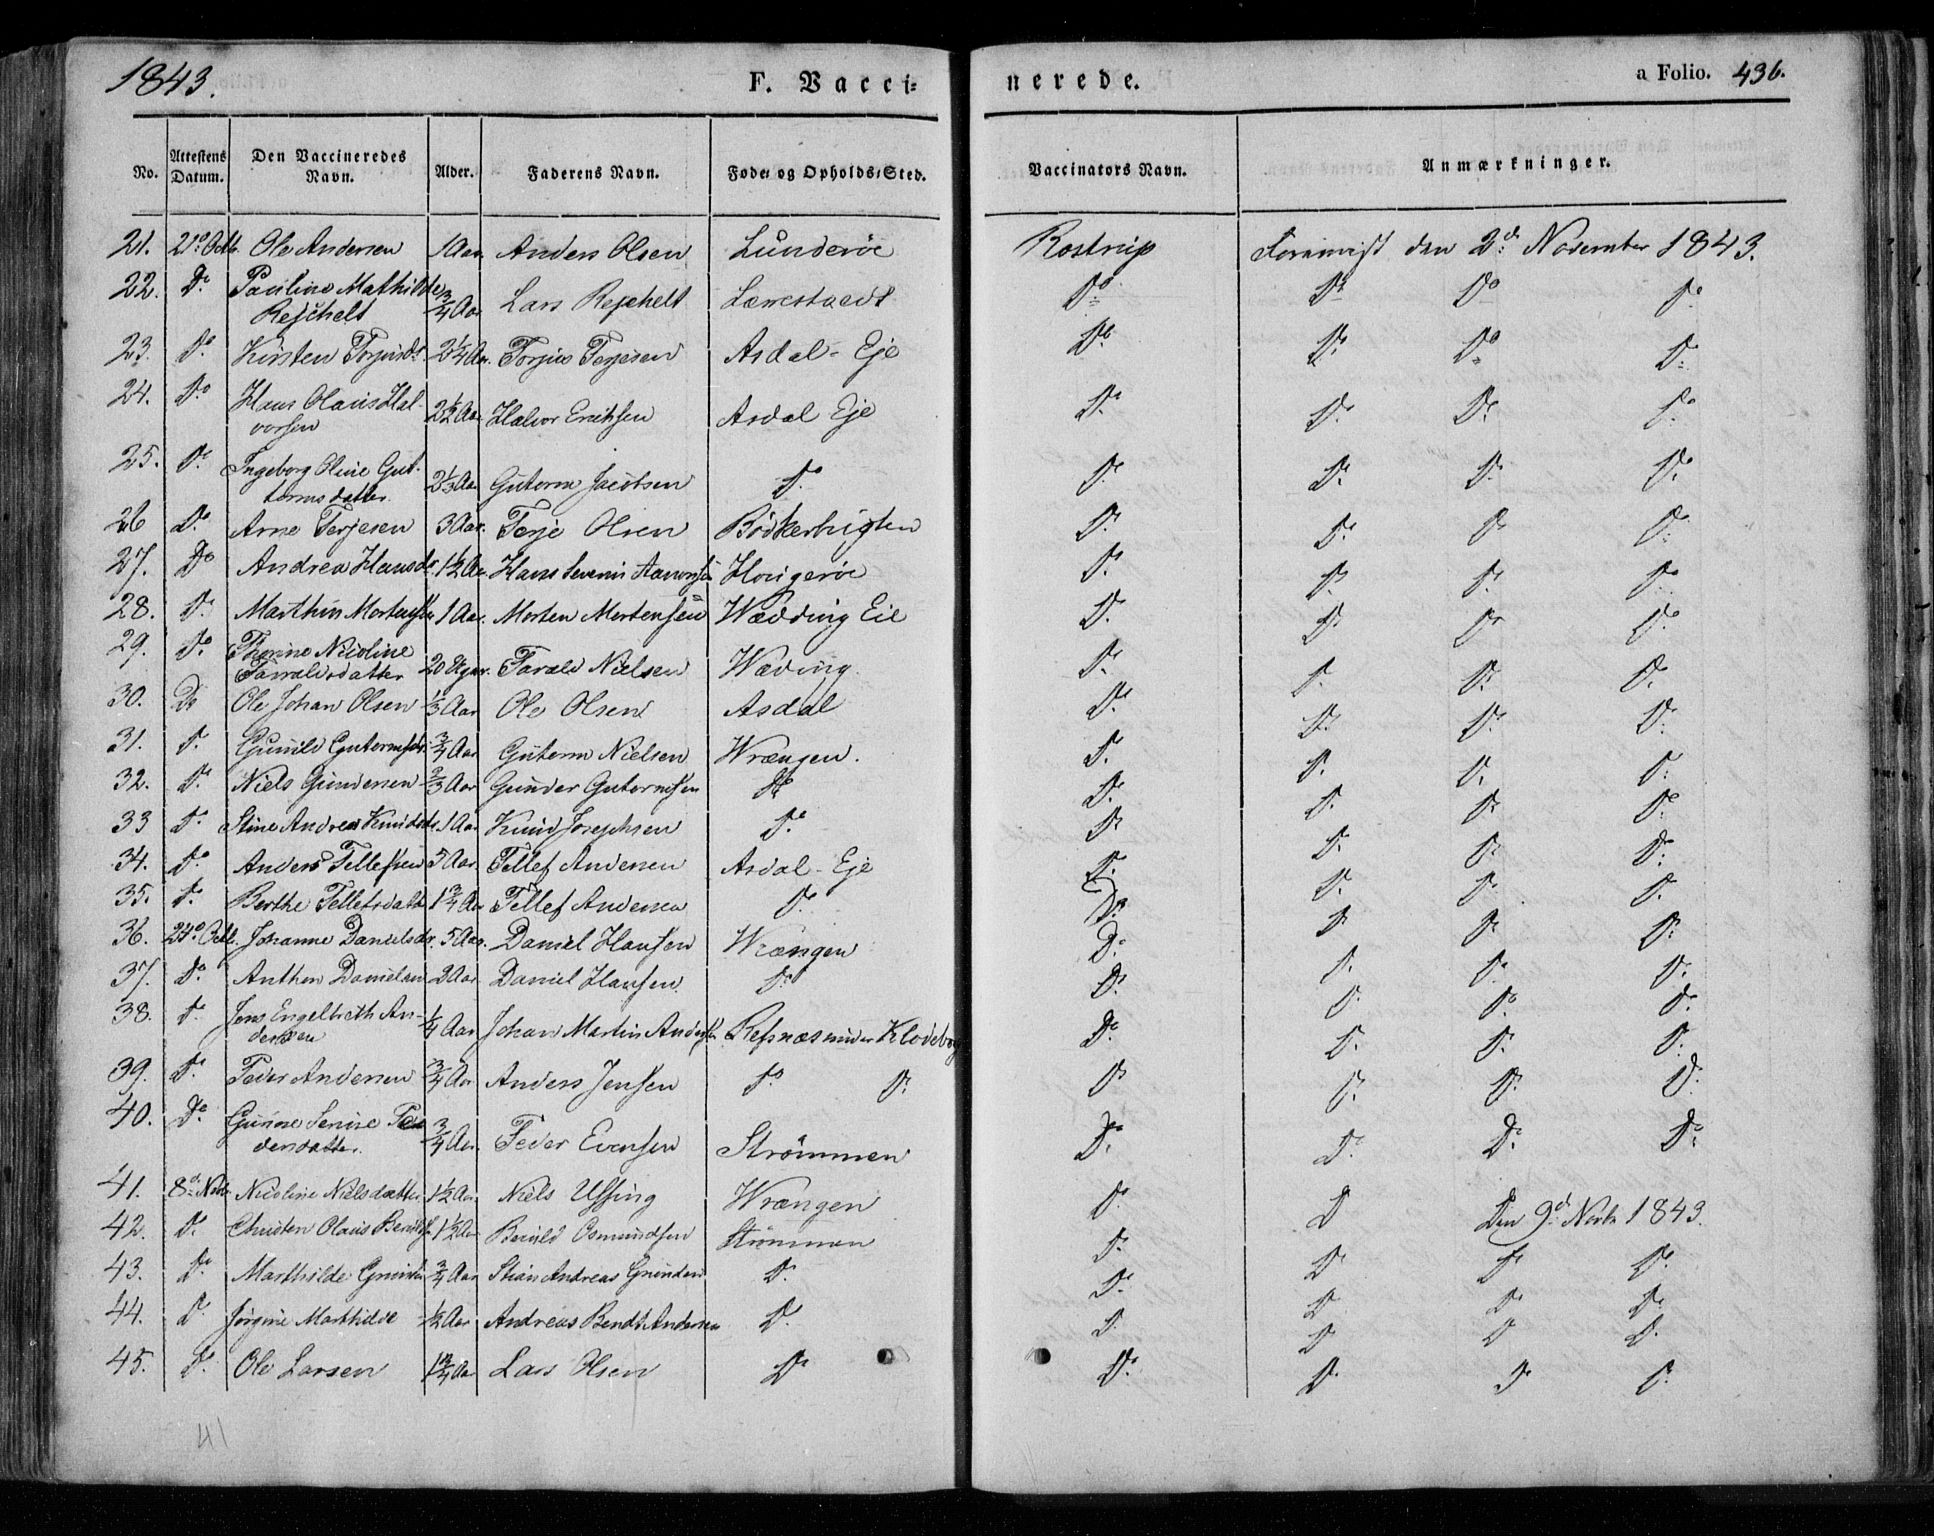 1843. F. Vacci= nerede. a Folio. 436.
No. Attestens Datum. Den Vaccineredes Navn. Alder. Faderens Navn. Føde= og Opholds=Sted. Vaccinators Navn. Anmærkninger.
21. 21de Octb. Ole Andersen 1 Aar Anders Olsen Lunderøe Rostrup Foreviist den 2d. November 1843.
22. Do Pauline Mathilde
Rejchelt 3/4 Aar Lars Rejchelt Lærestaedt Do Do Do Do
23. Do Kirsten Torjusdr. 2 1/4 Aar. Torjus Terjesen Asdal - Eje Do Do Do Do
24. Do Hans Olaus Hal-
vorsen 2 1/2 Aar Halvor Eriksen Asdal Eje Do Do Do Do
25. Do Ingeborg Oline Gut-
tormsdatter 2 1/3 Aar Gutorm Jacobsen Do Do Do Do Do
26 Do Arne Terjesen 3 Aar. Terje Olsen Bödkerbugten Do Do Do Do
27. Do Andrea Hansdr. 1 1/2 Aar Hans Severin Aanonsen Hougerøe Do Do Do Do
28. Do Marthin Mortensen 1 Aar. Morten Mortensen Wædding Eie Do Do Do Do
29. Do Nicoline
Taraldsdatter 20 Uger. Tarald Nielsen Wæding. Do Do Do Do
30. Do Ole Johan Olsen 1/3 Aar Ole Olsen Asdal Do Do Do Do
31. Do Gunild Gutormsdr. 3/4 Aar Gutorm Nielsen Wrængen. Do Do Do Do
32. Do Niels Gundersen 2/3 Aar Gunder Gutormsen Do Do Do Do Do
33 Do Stine Andrea Knudsdr. 1 Aar Knud Josephsen Do Do Do Do Do
34. Do Anders Tellefsen 5 Aar. Tellef Andersen Asdal - Eje Do Do Do Do
35. Do Berthe Tellefsdatt. 1 3/4 Aar Tellef Andersen Do Do Do Do Do
36. 24de Octb. Johanne Danielsdr. 5 Aar. Daniel Hansen Wrængen Do Do Do Do
37. Do Anthon Danielsen 2 Aar Daniel Hansen Do Do Do Do Do
38. Do Jens Engelbreth An-
dersen 1/4 Aar Johan Martin Andersen Refsnæs under Klodeborg Do Do Do Do
39. Do Peder Andersen 3/4 Aar Anders Jensen Do Do Do Do Do Do
40. Do Gunne Serine Pe-
dersdatter. 3/4 Aar. Peder Evensen Strömmen Do Do Do Do
41. 8de Novbr Nicoline Nielsdatter 1 1/2 Aar Niels Ussing Wrængen Do Do Den 9d. Novbr 1843.
42. Do Christen Olaus 1 1/2 Aar Osmundsen Strömmen Do Do Do Do
43. Do Marthilde 3/4 Aar Stian Andreas Gundersen Do Do Do Do Do
44. Do Jörgine Marthilde 1/2 Aar Andreas Bendt Andersen Do Do Do Do Do
45. Do Ole Larsen 1 3/4 Aar Lars Olsen Do Do Do Do Do
41